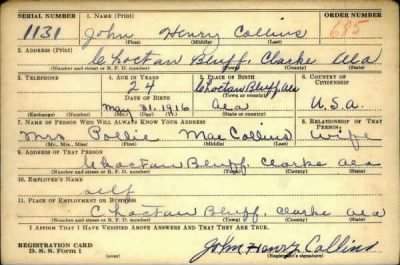 SERIAL NUMBER 1. NAME (Print) ORDER NUMBER
1131 John Henry Collins 685
(First) (Middle) (Last)
2. ADDRESS (Print)
Choctaw Bluff, Clarke Ala
(Number and street or R. F. D. number) (Town) (County) (State)
3. TELEPHONE 4. AGE IN YEARS 5. PLACE OF BIRTH 6. COUNTRY OF CITIZENSHIP
24 Choctaw Bluff, Ala
DATE OF BIRTH (Town or county)
May 31, 1916 Ala U.S.A.
(Exchange) (Number) (Mo.) (Day) (Yr.) (State or country)
7. NAME OF PERSON WHO WILL ALWAYS KNOW YOUR ADDRESS 8. RELATIONSHIP OF THAT PERSON
Mrs Pollie Mae Collins wife
(Mr., Mrs., Miss) (First) (Middle) (Last)
9. ADDRESS OF THAT PERSON
Choctaw Bluff, Clarke Ala
(Number and street or R. F. D. number) (Town) (County) (State)
10. EMPLOYER'S NAME
self
11. PLACE OF EMPLOYMENT OR BUSINESS
Choctaw Bluff, Clarke Ala
(Number and street or R. F. D. number) (Town) (County) (State)
I AFFIRM THAT I HAVE VERIFIED ABOVE ANSWERS AND THAT THEY ARE TRUE.
REGISTRATION CARD John Henry Collins
D. S. S. Form 1 (over) (Registrant's signature)